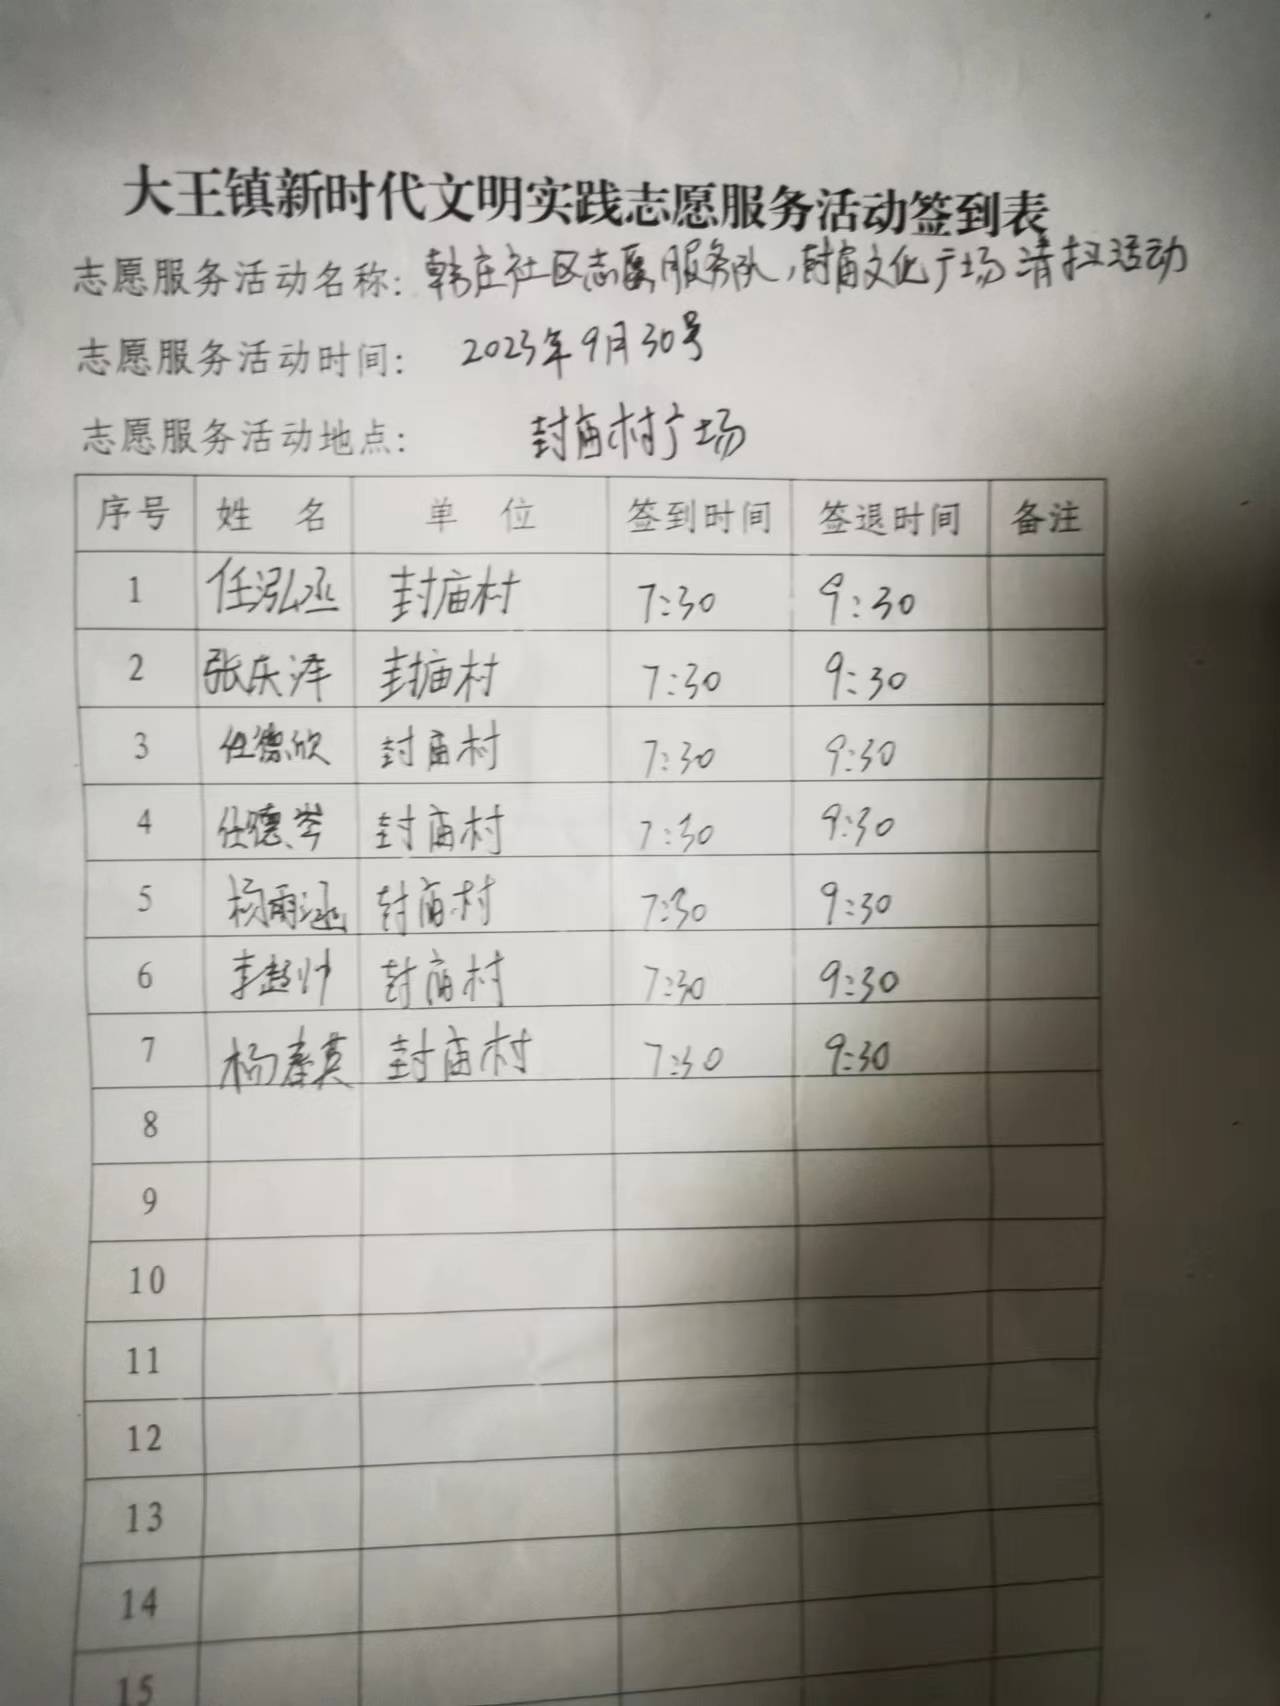 大王镇新时代文明实践志愿服务活动签到表
志愿服务活动名称：韩庄社区志愿服务队，封庙文化广场清扫活动
志愿服务活动时间：2023年9月30号
志愿服务活动地点：封庙村广场
序号 姓名 单位 签到时间 签退时间 备注
1 任泓丞 封庙村 7:30 9:30
2 张庆洋 封庙村 7:30 9:30
3 任德欣 封庙村 7:30 9:30
4 任德岑 封庙村 7:30 9:30
5 杨雨涵 封庙村 7:30 9:30
6 李超帅 封庙村 7:30 9:30
7 杨春英 封庙村 7:30 9:30
8
9
10
11
12
13
14
15